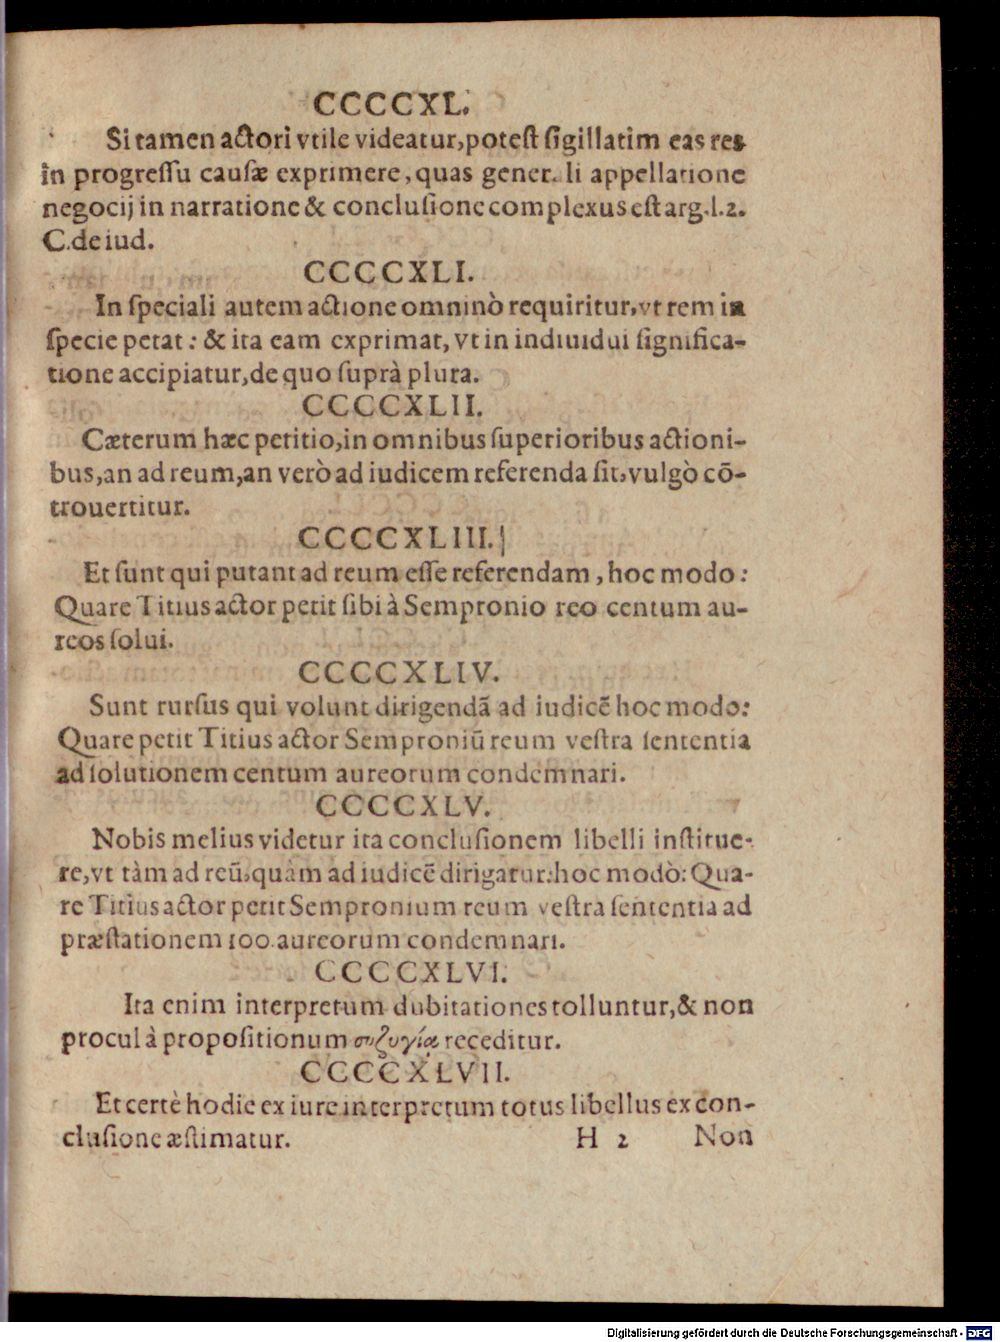 CCCCXL.
Si tamen actori vtile videatur, potest sigillatim eas res
in progressu causæ exprimere, quas gener. li appellatione
negocij in narratione & conclusione complexus est arg. l. 2.
C. de iud.
CCCCXLI.
In speciali autem actione omninò requiritur, vt rem in
specie petat: & ita eam exprimat, vt in indiuidui significa-
tione accipiatur, de quo suprà plura.
CCCCXLII.
Cæterum hæc petitio, in omnibus superioribus actioni-
bus, an ad reum, an verò ad iudicem referenda sit, vulgò cō-
trouertitur.
CCCCXLIII.
Et sunt qui putant ad reum esse referendam, hoc modo:
Quare Titius actor petit sibi à Sempronio reo centum au-
reos solui.
CCCCXLIV.
Sunt rursus qui volunt dirigendã ad iudicē hoc modo:
Quare petit Titius actor Semproniū reum vestra sententia
ad solutionem centum aureorum condemnari.
CCCCXLV.
Nobis melius videtur ita conclusionem libelli institue-
re, vt tàm ad reū, quàm ad iudicē dirigatur: hoc modò: Qua-
re Titius actor petit Sempronium reum vestra sententia ad
præstationem 100. aureorum condemnari.
CCCCXLVI.
Ita enim interpretum dubitationes tolluntur, & non
procul à propositionum συζυγίᾳ receditur.
CCCCXLVII.
Et certè hodie ex iure interpretum totus libellus ex con-
clusione æstimatur. H 2 Non
Digitalisierung gefördert durch die Deutsche Forschungsgemeinschaft - DFG